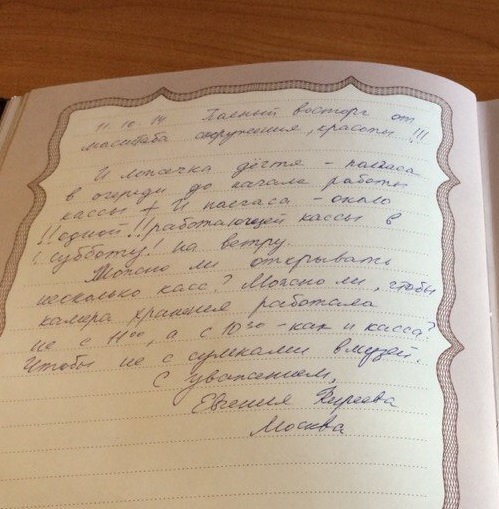 11.10.14 Полный восторг от
масштаба сооружения, красоты!!!
И ложечка дёгтя - полчаса
в очереди до начала работы
кассы + И полчаса - около
!!одной!! работающей кассы в
субботу! на ветру.
Можно ли открывать
несколько касс? Можно ли, чтобы
камера хранения работала
не с 11⁰⁰, а с 10³⁰ - как и касса?
Чтобы не с сумками в музей.
С уважением,
Евгения Киреева
Москва